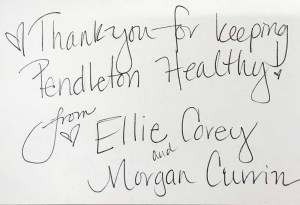 Thank you for keeping
Pendleton Healthy!
from
Ellie Corey
and
Morgan Currin